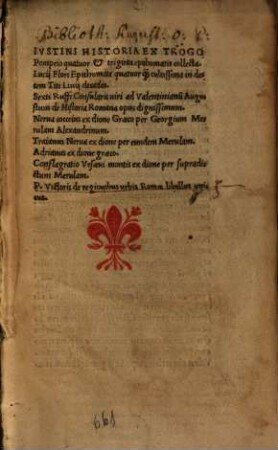 Biblioth: August: O: P:
IVSTINI HISTORIA EX TROGO
Pompeio quatuor & triginta epithomatis collecta.
Lucii Flori Epithomata quatuor cultissima in de
cem Titi Livii decades.
Sexti Ruffi Consularis viri ad Valentinianū Augu
stum de Historia Romana opus dignissimum.
Nerva ex dione Græco per Georgium Me
rulam Alexandrinum.
Traianus Nerva ex dione per eundem Merulam.
Adrianus ex dione græco.
Conflagratio Vesævi montis ex dione per supradi
ctum Merulam.
P. Victoris de regionibus urbis Romæ libellus
661